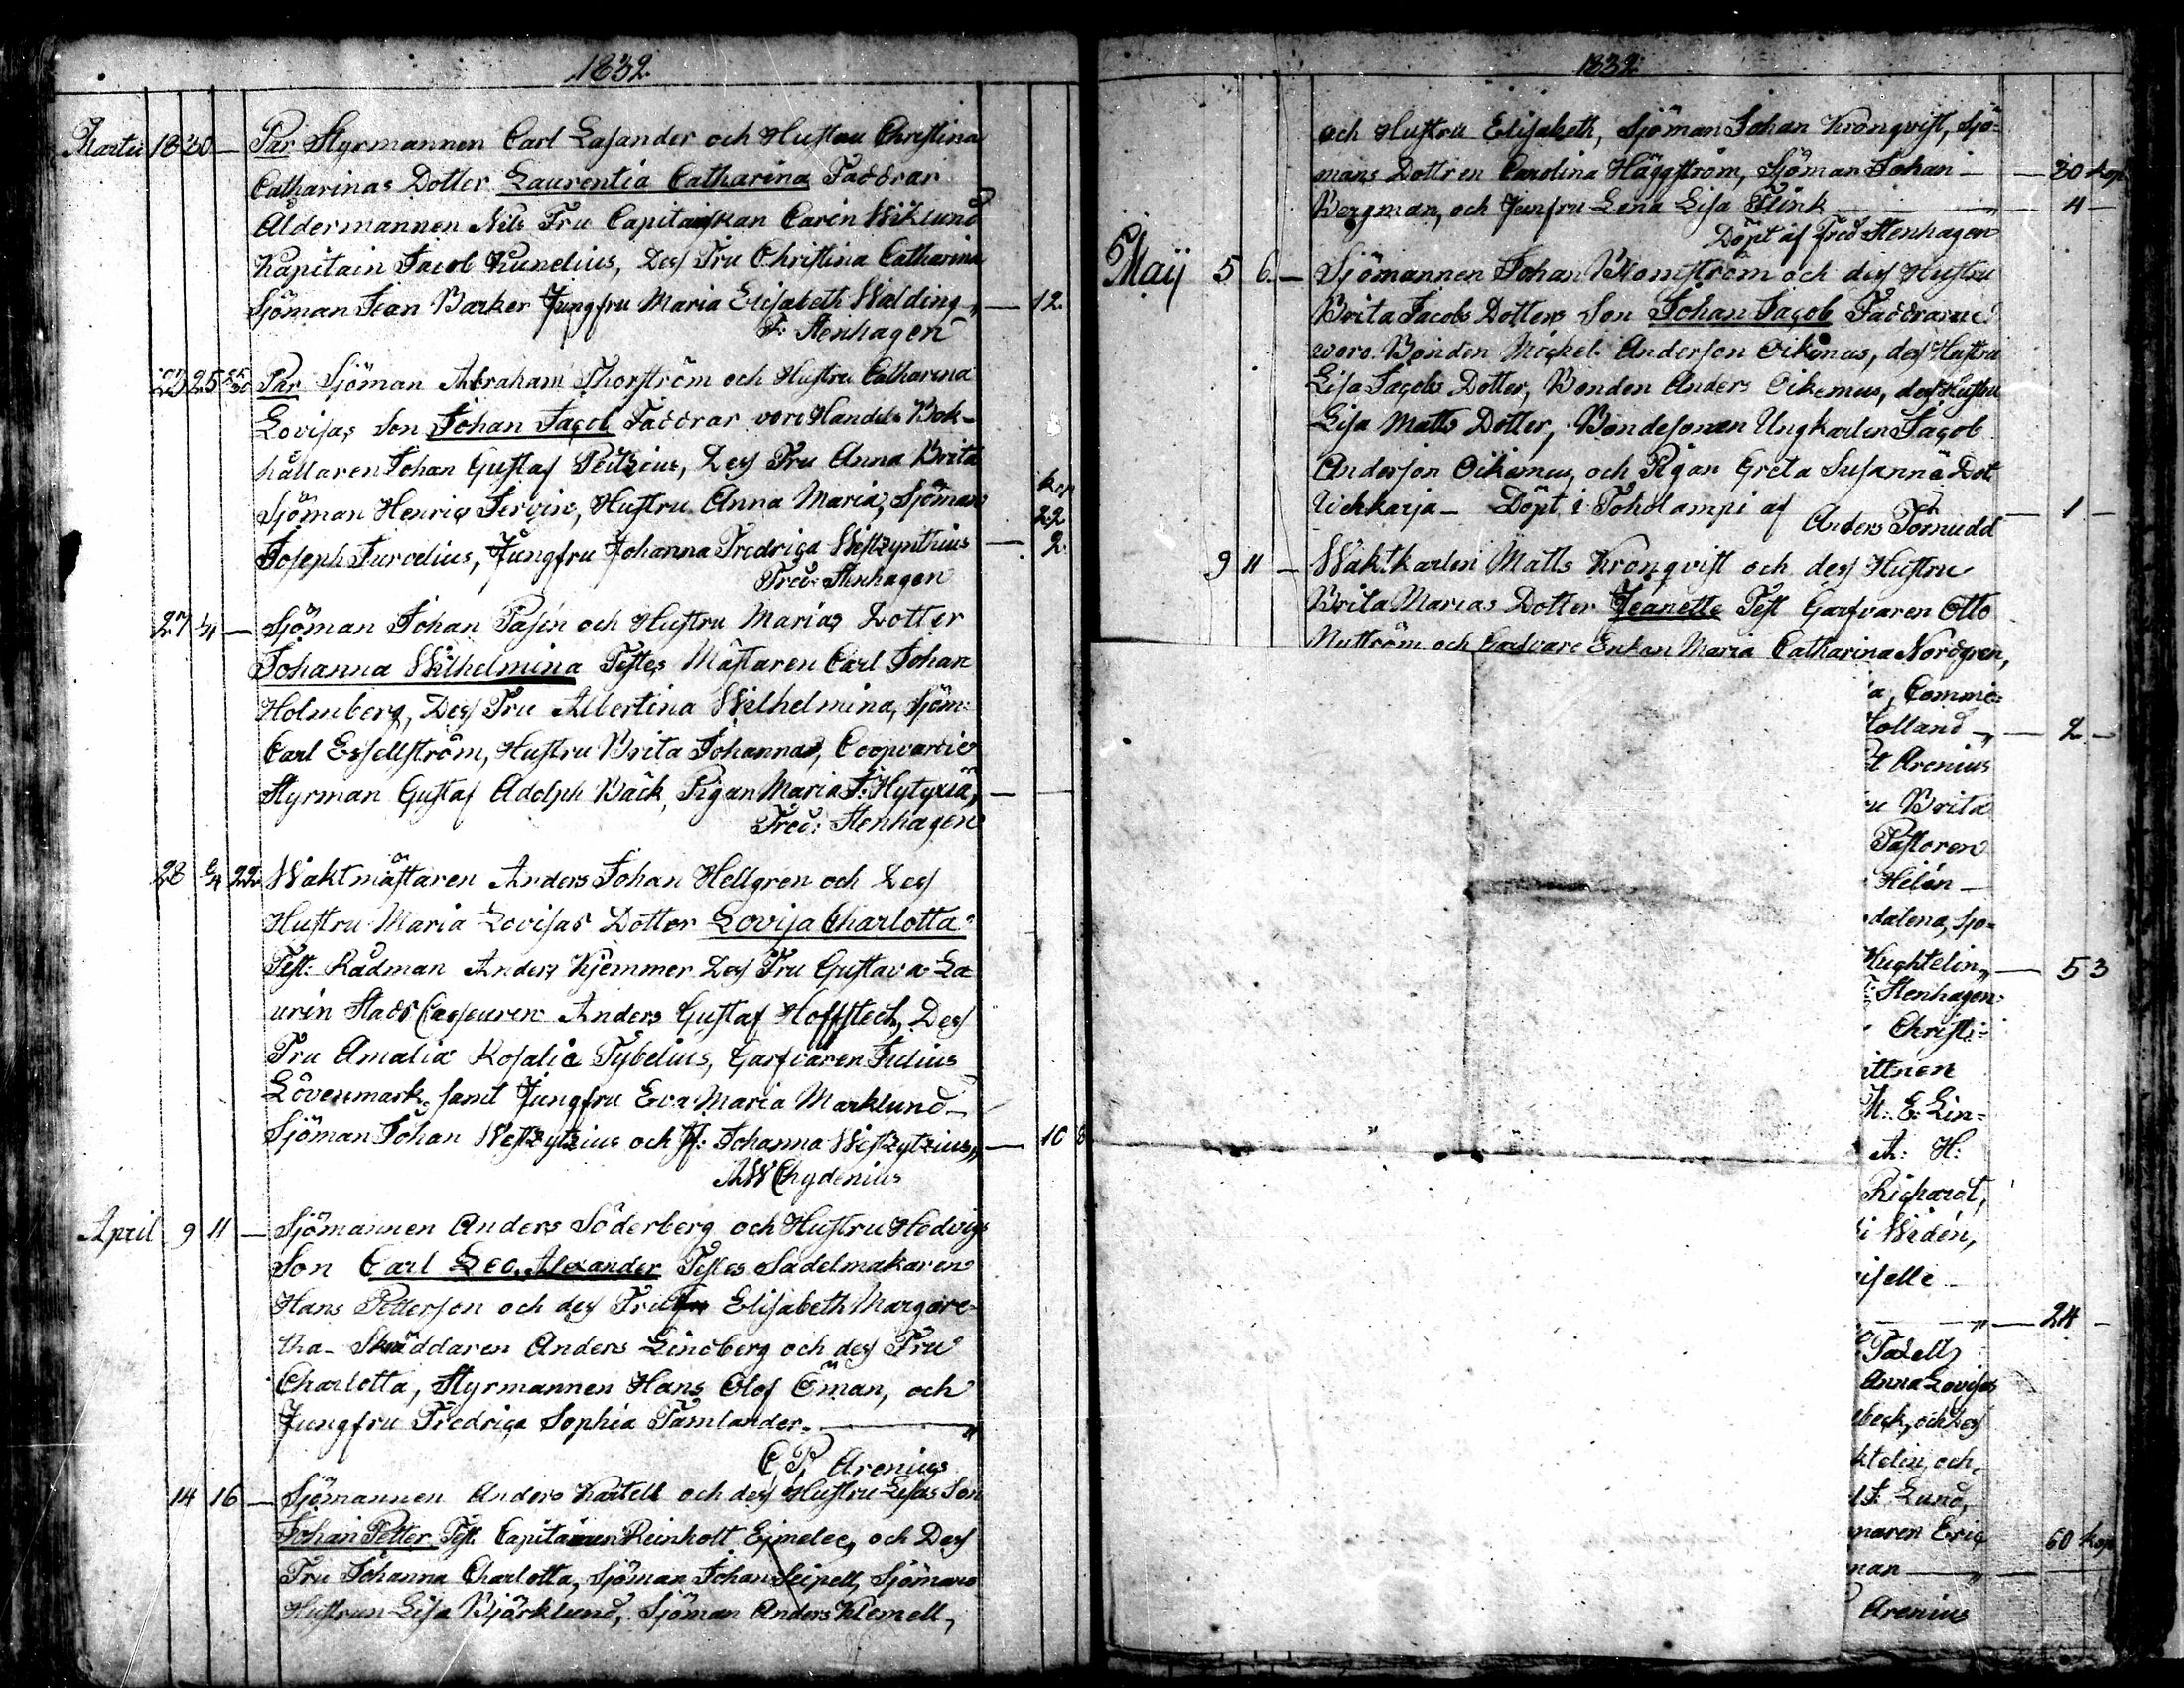 1832
Martii 18 30 — Par Styrmannen Carl Lasander och Hustru Christina
Catharinas Dotter Laurentia Catharina Faddrar
Åldermannen Nils Fru Capitainskan Carin Wiklund
Kapitain Jacob Kunelius, Dess Fru Christina Catharina
Sjöman Jean Barker Jungfru Maria Elisabeth Walding „ — 12.
F. Stenhagen
25 Par Sjöman Abraham Thorström och Hustru Catharina
Lovisas Son Johan Jacob Faddrar voro Handels Bok-
hållaren Johan Gustaf Peitzius, Dess Fru Anna Brita
Sjöman Henric Servin, Hustru Anna Maria, Sjöman kop 22
Joseph Jurvelius, Jungfru Johanna Fredrica Westzynthius — 2.
Fred: Stenhagen
27 4 — Sjöman Johan Pasén och Hustru Marias Dotter
Johanna Wilhelmina Testes Mästaren Carl Johan
Holmberg, Dess Fru Albertina Wilhelmina, Sjöm:
Carl Essellström, Hustru Brita Johannas, Coopvardie
Styrman Gustaf Adolph Bäck, Pigan Maria J: Hytyxiä, —
Fred: Stenhagen
28 22 Waktmästaren Anders Johan Hellgren och Dess
Hustru Maria Lovisas Dotter Lovisa Charlotta
Test: Rådman Anders Kjemmer Dess Fru Gustava La
urin Stads Casseuren Anders Gustaf Hoffstech, Dess
Fru Amalia Rosalie Tybelius, Garfvaren Julius
Lövenmark, samt Jungfru Eva Maria Marklund —
Sjöman Johan Westzytzius och Jf: Johanna Westzytzius „ — 10 8
AW Chydenius
April 9 11 — Sjömannen Anders Söderberg och Hustru Hedvigs
Son Carl Leo. Alexander Testes Sadelmakaren
Hans Petterson och dess Fru Elisabeth Margare-
tha - Skräddaren Anders Lindberg och dess Fru
Charlotta, Styrmannen Hans Olof Öman, och
Jungfru Fredrica Sophia Tamlander. — „
C. P. Arenius
14 16 — Sjömannen Anders Kartell och dess Hustru Lisas Son
Johan Petter Test. Capitainen Reinholt Ejmelee, och Dess
Fru Johanna Charlotta, Sjöman Johan Seipell, Sjömans
Hustrun Lisa Björklund, Sjöman Anders Klemell,
1832
och Hustru Elisabeth, Sjöman Johan Kronqvist, Sjö-
mans Dottren Carolina Häggström, Sjöman Johan — — 30 kop
Bergman, och Junfru Lena Lisa Flink — „ — 4 —
Döpt af Fred Stenhagen
Maij 5 6 — Sjömannen Johan Blomström och dess Hustru
Brita Jacobs Dotters Son Johan Jacob Faddrarne
woro Bonden Michel Anderson Oikemus, dess Hustru
Lisa Jacobs Dotter, Bonden Anders Oikemus, dess Hustru
Lisa Matts Dotter, Bondesonen Ungkarlen Jacob
Anderson Oikemus, och Pigan Greta Susanna Dot
Uchkarja — Döpt i Toholampi af — 1 —
Anders Törnudd
9 11 — Waktkarlen Matts Kronqvist och dess Hustru
Brita Marias Dotter Jeanette Test Garfvaren Otto
Nyström och Garfvare Enkan Maria Catharina Nordgren,
a, Commi-
Holland „ — 2 —
t Arenius
ru Brita
Pastoren
Helén —
dalena, Sjö-
Huchtelin „ — 53
Stenhagen
Christi-
ittnen
M: E: Lin-
A: H:
Richardt,
i Widén,
iselle
„ — 24 —
Tadell
Anna Lovisas
beck, och Dess
ktelin, och
J: Lund,
naren Eric 60 kop
man — „ —
Arenius